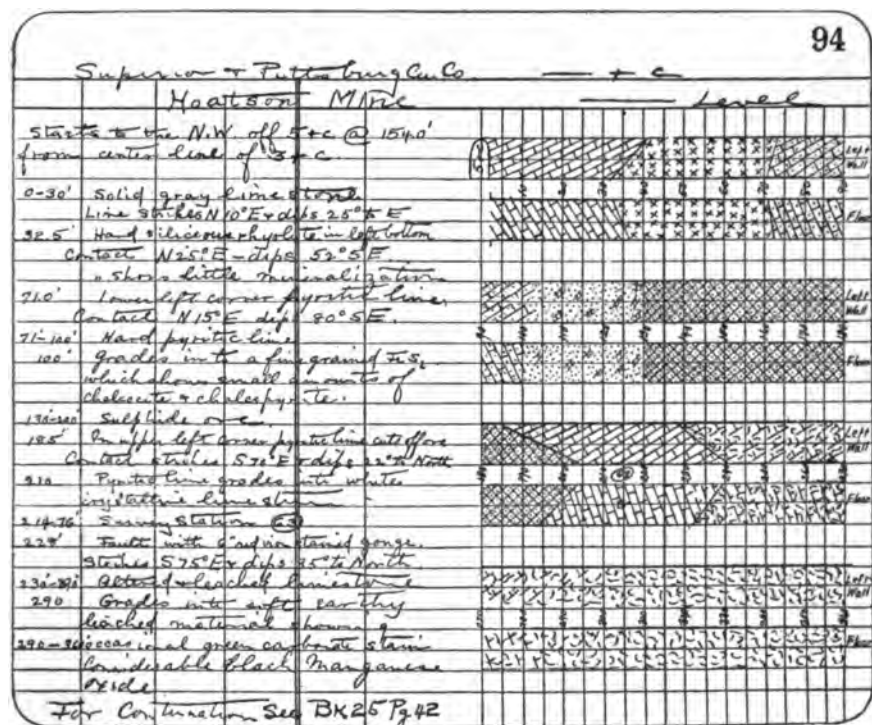 94
Superior & Pittsburg Cu Co. — + c
Hoatson Mine — Level
Starts to the N.W. off 5+c @ 154.0'
from center line of 3+c.
0-30' Solid gray limestone.
Lime strikes N 10° E & dips 25° to E
32.5' Hard siliceous rhyolite in left bottom
Contact N 25° E - dips 52° S E
" shows little mineralization
71.0' Lower left corner pyritic lime.
Contact N 15° E dips 80° S E.
71-100' Hard pyritic lime
100' grades into a fine grained FeS2
which shows small amounts of
chalcocite & chalcopyrite.
130-200' Sulphide ore
185' In upper left corner pyritic lime cuts off ore
Contact strikes S 70° E & dips 22° to North
210 Pyritic lime grades into white
crystalline lime
214.76' Survey Station 63
228' Fault with 6" red iron stained gouge.
Strikes S 75° E & dips 45° to North
230-290' Altered & leached limestone
290 Grades into soft earthy
leached material showing
290-360 occasional green carbonate stain
Considerable black Manganese
oxide
For Continuation See BK 25 Pg 42
Left
Wall
10 20 30 40 50 60 70 80 90
Floor
Left
Wall
Floor
Left
Wall
Floor
Left
Wall
Floor